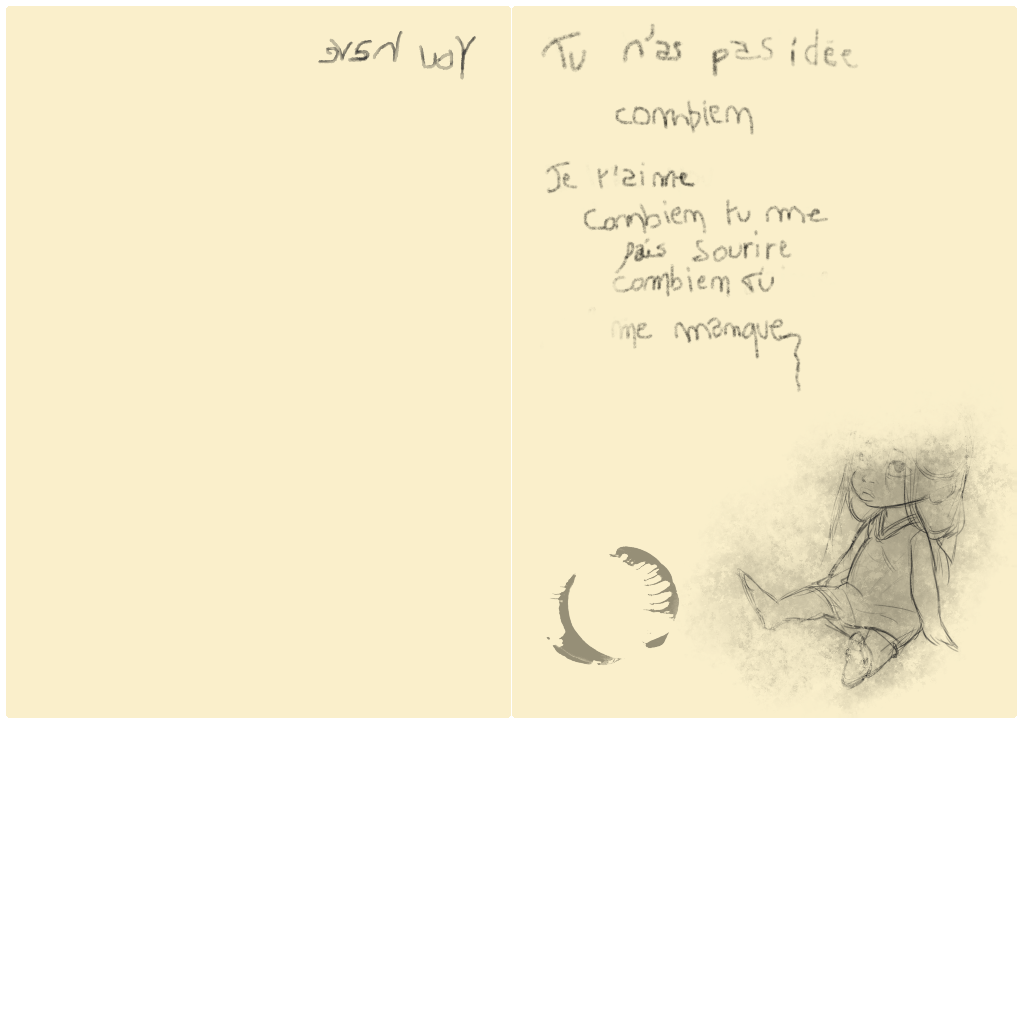 Tu n'as pas idée
combiem
Je t'aime
Combiem tu me
fais sourire
combiem Tu
me manque